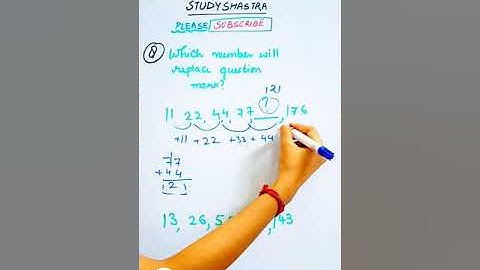 STUDYSMASTRA
PLEASE SUBSCRIBE
Q Which number will
replace question
mark?
121
11 22, 44, 77, ?, 176
+11 +22 +33 + 44
77
+ 44
121
13, 26, 143